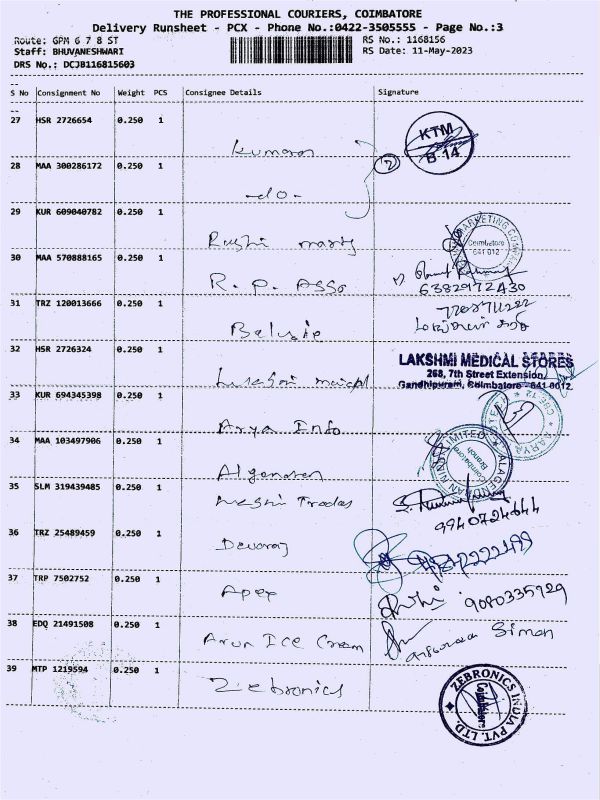 THE PROFESSIONAL COURIERS, COIMBATORE
Delivery Runsheet - PCX - Phone No.:0422-3505555 - Page No.:3
Route: GPM 6 7 8 ST
RS No.: 1168156
Staff: BHUVANESHWARI
RS Date: 11-May-2023
DRS No.: DCJB116815603
S No Consignment No Weight PCS Consignee Details Signature
27 HSR 2726654 0.250 1 Kumaran
KTM
B 14
28 MAA 300286172 0.250 1 -do-
2
29 KUR 609040782 0.250 1
MARKETING
Coimbatore
641 012
30 MAA 570888165 0.250 1 R. P. Asso
6382972430
31 TRZ 120013666 0.250 1
32 HSR 2726324 0.250 1
LAKSHMI MEDICAL STORES
268, 7th Street Extension,
Gandhipuram, Coimbatore - 641 0012.
33 KUR 694345398 0.250 1 Arya Info
34 MAA 103497906 0.250 1
LIMITED
Coimbatore
Branch
35 SLM 319439485 0.250 1 Trades
9940724644
36 TRZ 25489459 0.250 1 Devaraj
37 TRP 7502752 0.250 1 Apex
9080335929
38 EDQ 21491508 0.250 1 Arun Ice Cream
Simon
39 MTP 1219594 0.250 1 Zebronics
ZEBRONICS INDIA PVT. LTD.
Coimbatore